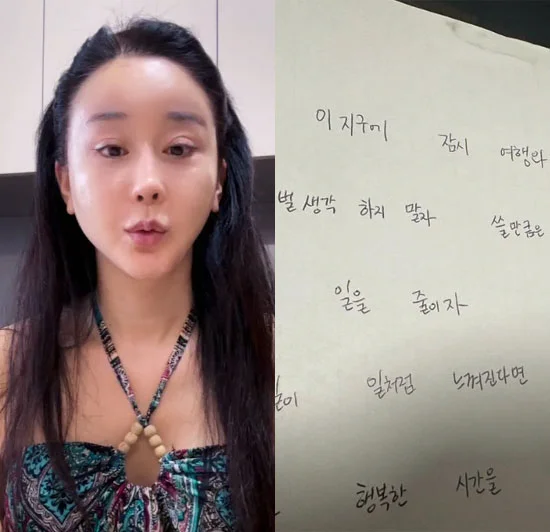 이 지구에 잠시 여행와
벌 생각 하지 말자 쓸만큼은
일을 줄이자
일처럼 느껴진다면
행복한 시간을